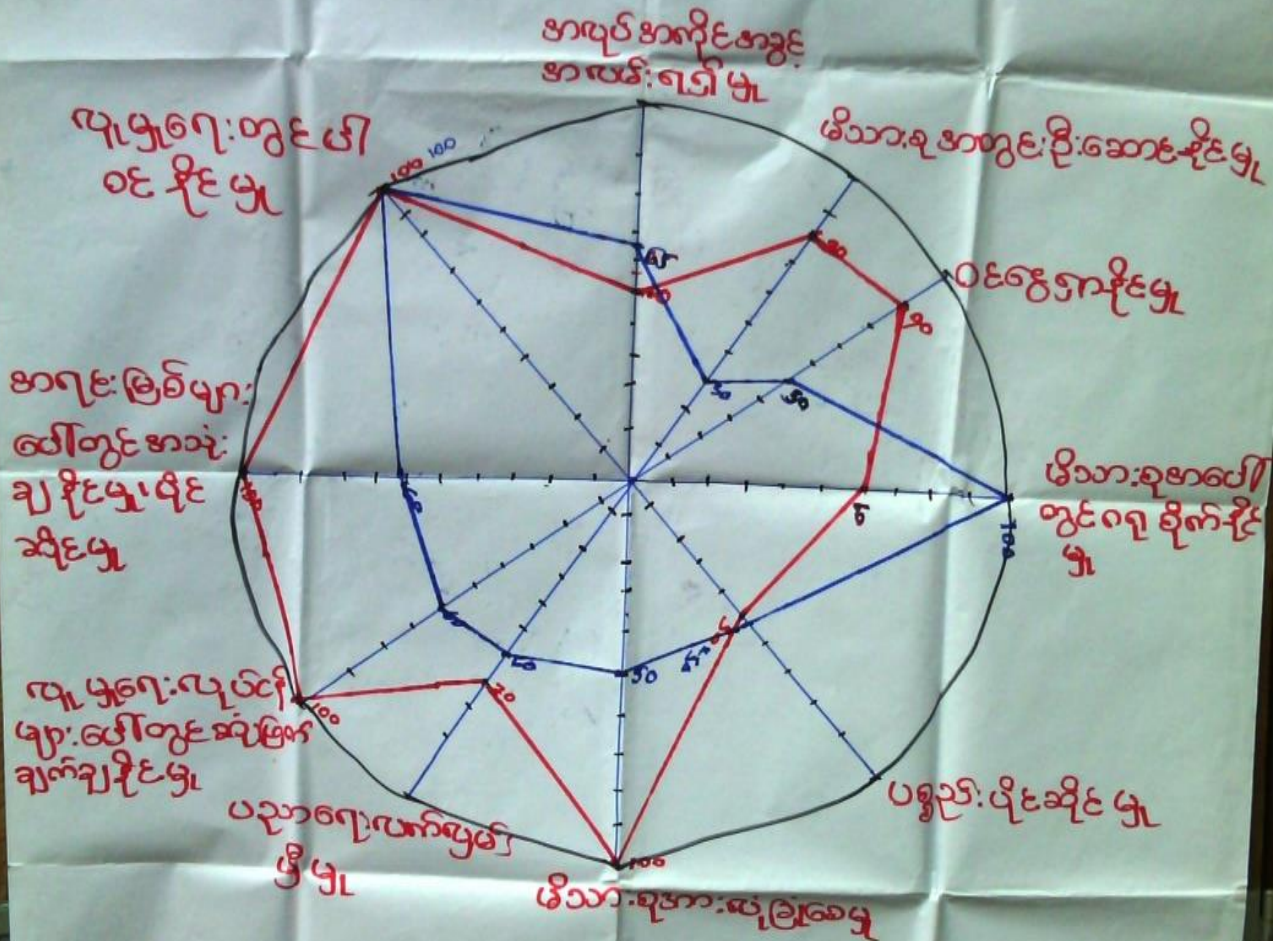 အလုပ်အကိုင်အခွင့်
အလမ်းရရှိမှု
မိသားစုအတွင်းဦးဆောင်နိုင်မှု
ဝင်ငွေရှာနိုင်မှု
မိသားစုအပေါ်
တွင်ဂရုစိုက်နိုင်
မှု
ပစ္စည်းပိုင်ဆိုင်မှု
မိသားစုအားလုံခြုံစေမှု
ပညာရေးလက်လှမ်း
မှီမှု
လူမှုရေးလုပ်ငန်း
များပေါ်တွင်ဆုံးဖြတ်
ချက်ချနိုင်မှု
အရင်းမြစ်များ
ပေါ်တွင်အသုံး
ချနိုင်မှု၊ပိုင်
ဆိုင်မှု
လူမှုရေးတွင်ပါ
ဝင်နိုင်မှု
100
100
65
30
50
100
50
100
70
100
60